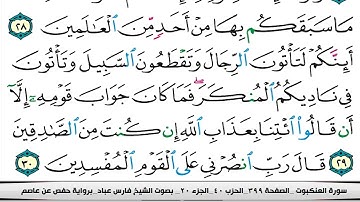 مَا سَبَقَكُم بِهَا مِنْ أَحَدٍ مِّنَ ٱلْعَٰلَمِينَ ٢٨
أَئِنَّكُمْ لَتَأْتُونَ ٱلرِّجَالَ وَتَقْطَعُونَ ٱلسَّبِيلَ وَتَأْتُونَ
فِى نَادِيكُمُ ٱلْمُنكَرَ ۖ فَمَا كَانَ جَوَابَ قَوْمِهِۦٓ إِلَّآ
أَن قَالُوا۟ ٱئْتِنَا بِعَذَابِ ٱللَّهِ إِن كُنتَ مِنَ ٱلصَّٰدِقِينَ
٢٩ قَالَ رَبِّ ٱنصُرْنِى عَلَى ٱلْقَوْمِ ٱلْمُفْسِدِينَ ٣٠
سورة العنكبوت _ الصفحة ٣٩٩ _ الحزب ٤٠ _ الجزء ٢٠ _ بصوت الشيخ فارس عباد _ برواية حفص عن عاصم